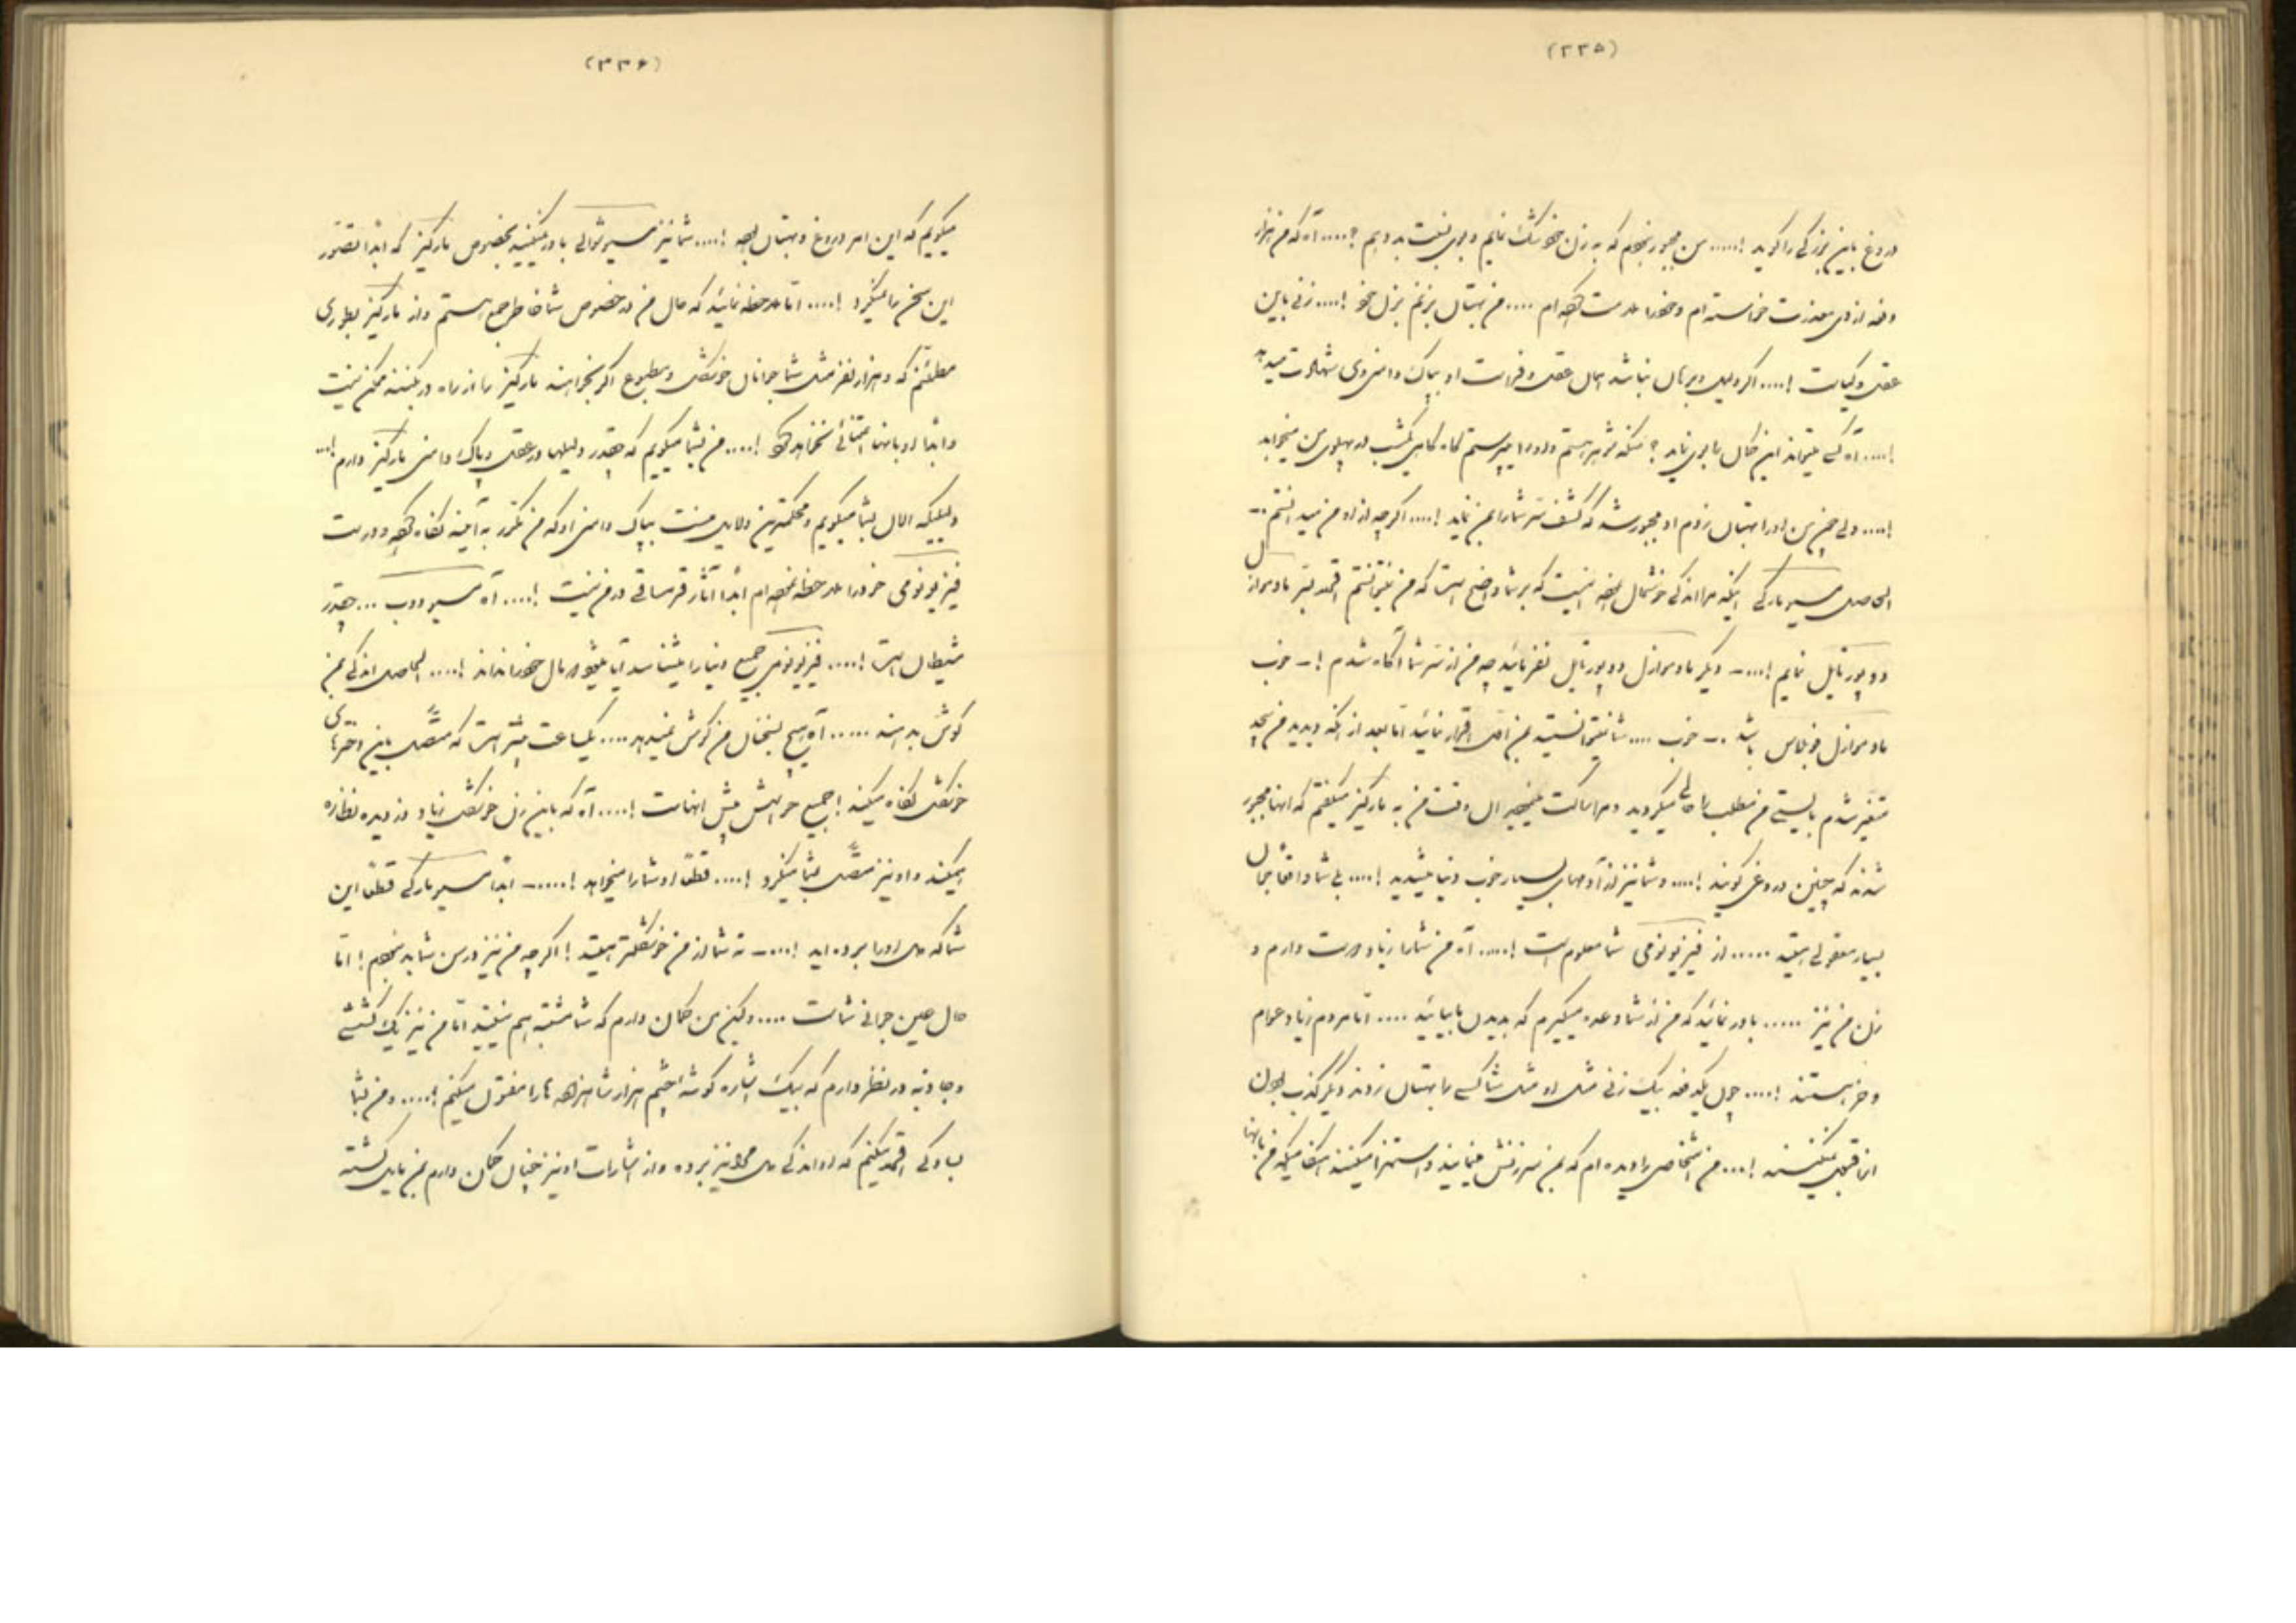 (۲۳۵)
دروغ باین بزرگی را گوید !..... من مجبور نبودم که به زن خود شک نمایم و بوی نسبت بد دهم ؟.... آه که من هزار
دفعه از وی معذرت خواسته‌ام و خود را ملامت کرده‌ام .... من بهتان بزنم بزن خود !.... زنی باین
عقل و کیاست !.... اگر دلیل و برهان نباشد همان عقل و فراست او بپاک دامنی وی شهادت میدهد
!.... آه کی میتواند این گمان را بوی نماید ؟ منکه شوهر هستم و او را میپرستم گاه گاهی یکشب در پهلوی من میخوابد
!.... ولی چون من او را بهتان زدم او مجبور شد که کشف سر شما را بمن نماید !.... اگر چه از او من نمیدانستم ..
الحاصل مسیو مارکی اینکه مرا اندکی خوشحال نموده اینست که بر شما واضح است که من نمیتوانستم قصد بستر مادموازل
دو پورتایل نمایم !...ـ دیگر مادموازل دو پورتایل نفرمائید چه من از سر شما آگاه شدم !ـ خوب
مادموازل فوبلاس باشد .ـ خوب .... شما نمیتوانستید بمن اصل اقرار نمائید اما بعد از آنکه دیدید من بیجهة
متغیر شدم بایستی من مطلب را حالی میکردید و مرا ساکت مینمودید آن وقت من به مارکیز میگفتم که اینها مجبور
شدند که چنین دروغی گویند !.... و شما نیز از آدمهای بسیار خوب دنیا میشدید !.... بلی شما واقعا جوان
بسیار معقولی هستید ..... از فیزیونومی شما معلوم است !..... آه من شما را زیاد دوست دارم و
زن من نیز ..... باور نمائید که من از شما وعده میگیرم که بدیدن ما بیائید .... اما مردم زیاد عوام
و خر هستند !.... چون یکدفعه بیک زنی مثل او مثل شما کسی را بهتان زدند دیگر کذب بودن
آنرا قبول نمیکنند !... من اشخاصی را دیده‌ام که بمن سرزنش مینمایند و استهزا میکنند آنگاه میکه من بآنها
(۲۳۶)
میگویم که این امر دروغ و بهتان بوده !.... شما نیز مسیو شوالی باور نمیکنید بخصوص مارکیز که ابدا تصور
این سخن را نمیکرد !.... اما ملاحظه نمائید که حال من در خصوص شما خاطر جمع هستم و از مارکیز بطوری
مطمئنم که دو هزار نفر مثل شما جوانان خوشگل و مطبوع اگر بخواهند مارکیز را از راه در بکنند ممکن نیست
و ابدا او بآنها اعتنائی نخواهد کرد !.... من بشما میگویم که چقدر دلیلها در عقل و پاک دامنی مارکیز دارم !...
دلیلیکه الان بشما میگویم و محکمترین دلایل منست بپاک دامنی او که من مکرر به آیینه نگاه کرده و درست
فیزیونومی خود را ملاحظه نموده‌ام ابدا آثار قرمساقی در من نیست !.... آه مسیو دوب ... چقدر
شیطان است !.... فیزیونومی جمیع دنیا را میشناسد آیا میشود مال خود را نداند !.... الحاصل اندکی بمن
گوش بدهید ..... آه هیچ بسخنان من گوش نمیدهد .... یکساعت بیشتر است که متصل باین دخترهای
خوشگل نگاه میکند ! جمیع حواسش پیش آنهاست !.... آه که باین زن خوشگل زیاد دزدیده نظاره
میکند و او نیز متصل بشما مینگرد !.... قطعا او شما را میخواهد !.....ـ ابدا مسیو مارکی قطعا این
شما که دل او را برده اید !....ـ نه شما از من خوشگلتر هستید ! اگر چه من نیز در سن شما بد نبودم ! اما
حال عین جوانی شماست .... ولیکن من گمان دارم که شما مشتبه هم نیستید اما من نیز یک کششی
و جاذبه در نظر دارم که بیک اشاره گوشه چشم هزار شاهزاده ها را مفتون میکنم !.... و من بشما
بسادگی اقرار میکنم که او اندکی دل مرا نیز برده و از اشارات او نیز چنان گمان دارم بمن مایل گشته